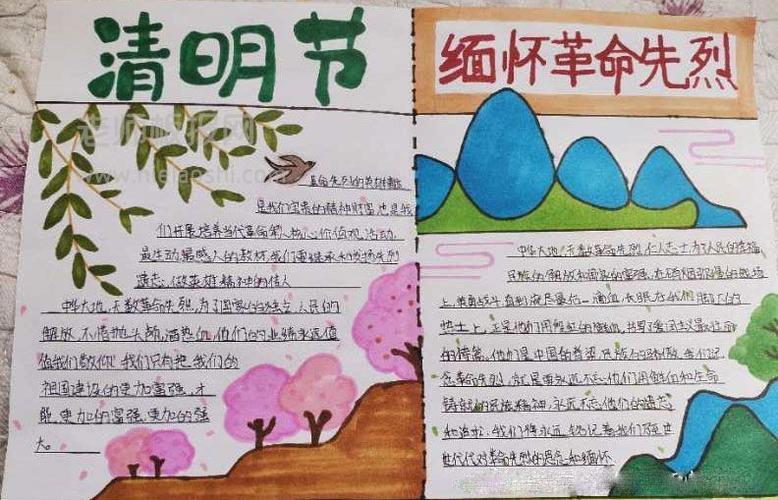 清明节
革命先烈的英雄事迹
是我们宝贵的精神财富也是我
们开展培养当代革命制人核心价值观活动,
最生动最感人的教材,我们要继承和发扬先烈
遗志,做英雄精神的传人
中华大地,无数革命先烈,为了国家的独立,人民的
解放,不惜抛头颅,洒热血,他们的业绩永远值
值我们敬仰,我们只有把我们的
祖国建设的更加富强,才
能更加的富强,更加的强
大。
缅怀革命先烈
中华大地,无数革命先烈,仁人志士为了人民的幸福
民族的解放和国家的富强,在硝烟弥漫的战场
上,英勇战斗直到流尽最后一滴血,长眠在我们脚下的
热土上,正是他们用鲜红的热血,书写爱国主义最壮丽
的诗篇。他们是中国的脊梁,民族的骄傲,我们纪
念革命先烈,就是要永远不忘他们用鲜血和生命
铸就的民族精神,永远不忘他们的遗志
和追求,我们将永远铭记着我们
世代代对革命先烈的思念和缅怀
老师板报网